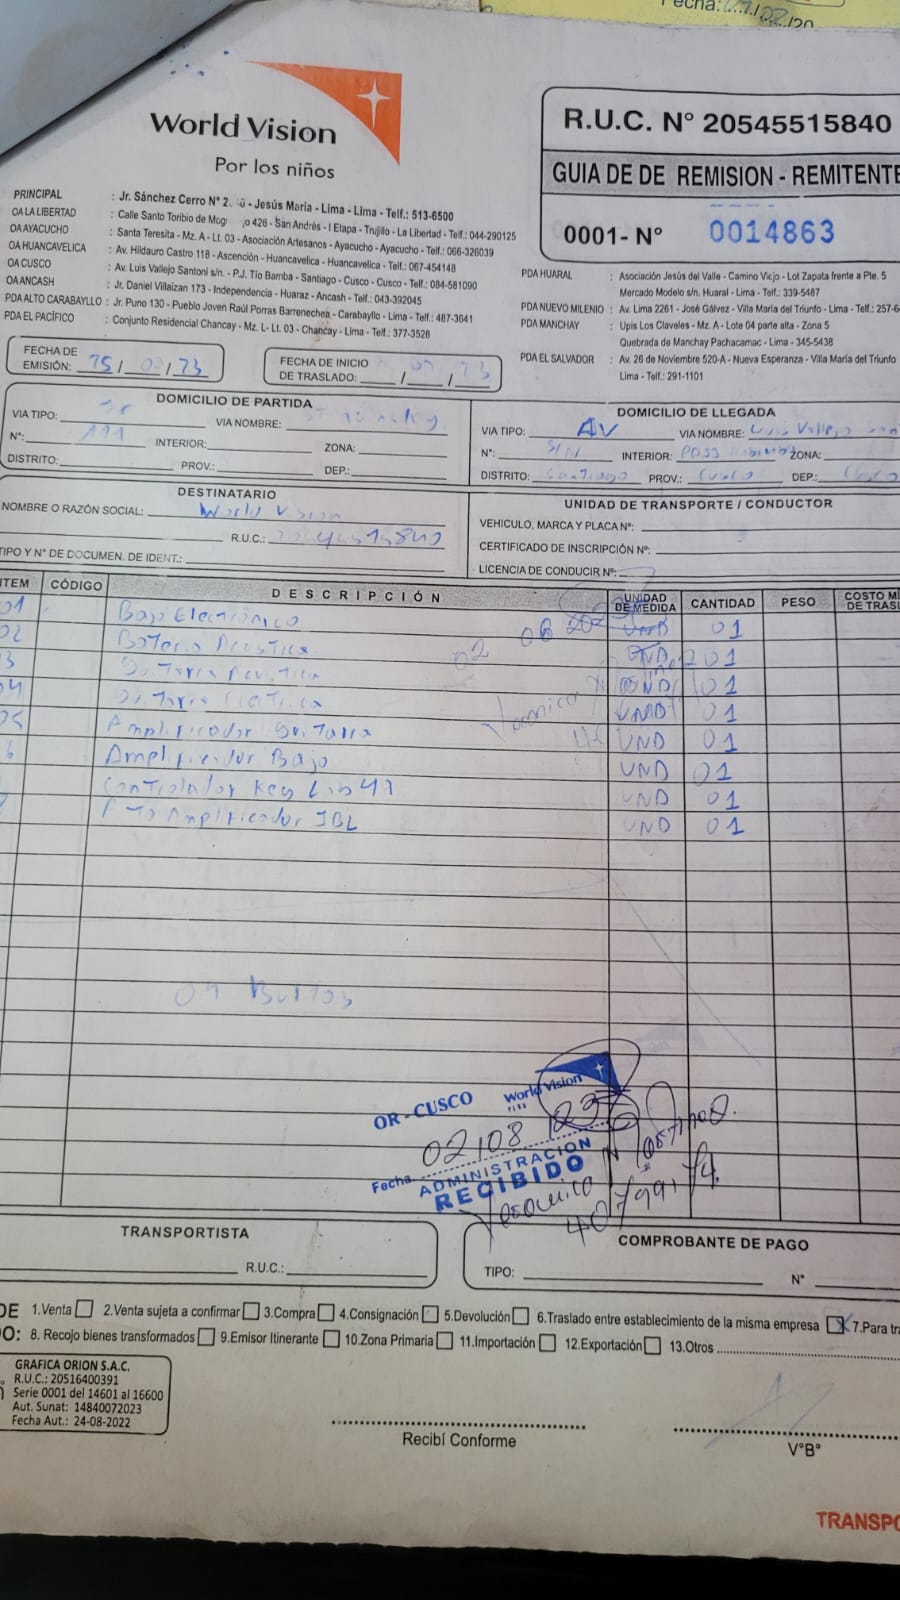 Fecha:
World Vision
Por los niños
R.U.C. N° 20545515840
GUIA DE DE REMISION - REMITENTE
0001- N° 0014863
PRINCIPAL : Jr. Sánchez Cerro N° - Jesús María - Lima - Lima - Telf.: 513-6500
OA LA LIBERTAD : Calle Santo Toribio de 426 - San Andrés - I Etapa - Trujillo - La Libertad - Telf.: 044-290125
OA AYACUCHO : Santa Teresita - Mz. A - Lt. 03 - Asociación Artesanos - Ayacucho - Ayacucho - Telf.: 066-326039
OA HUANCAVELICA : Av. Hildauro Castro 118 - Ascención - Huancavelica - Huancavelica - Telf.: 067-454148
OA CUSCO : Av. Luis Vallejo Santoni s/n. - P.J. Tío Bamba - Santiago - Cusco - Cusco - Telf.: 084-581090
OA ANCASH : Jr. Daniel Villaizan 173 - Independencia - Huaraz - Ancash - Telf.: 043-392045
PDA ALTO CARABAYLLO : Jr. Puno 130 - Pueblo Joven Raúl Porras Barrenechea - Carabayllo - Lima - Telf.: 487-3641
PDA EL PACÍFICO : Conjunto Residencial Chancay - Mz. L- Lt. 03 - Chancay - Lima - Telf.: 377-3528
PDA HUARAL : Asociación Jesús del Valle - Camino Viejo - Lot Zapata frente a Pte. 5
Mercado Modelo s/n. Huaral - Lima - Telf.: 339-5487
PDA NUEVO MILENIO : Av. Lima 2261 - José Gálvez - Villa María del Triunfo - Lima - Telf.: 257-6
PDA MANCHAY : Upis Los Claveles - Mz. A - Lote 04 parte alta - Zona 5
Quebrada de Manchay Pachacamac - Lima - 345-5438
PDA EL SALVADOR : Av. 26 de Noviembre 520-A - Nueva Esperanza - Villa María del Triunfo
Lima - Telf.: 291-1101
FECHA DE EMISIÓN: / /
FECHA DE INICIO DE TRASLADO: / /
DOMICILIO DE PARTIDA
VIA TIPO: VIA NOMBRE:
N°: INTERIOR: ZONA:
DISTRITO: PROV.: DEP.:
DOMICILIO DE LLEGADA
VIA TIPO: AV VIA NOMBRE: Luis Vallejo
N°: S/N INTERIOR: ZONA:
DISTRITO: Santiago PROV.: Cusco DEP.: Cusco
DESTINATARIO
NOMBRE O RAZÓN SOCIAL: World Vision
R.U.C.:
TIPO Y N° DE DOCUMEN. DE IDENT.:
UNIDAD DE TRANSPORTE / CONDUCTOR
VEHICULO, MARCA Y PLACA N°:
CERTIFICADO DE INSCRIPCIÓN N°:
LICENCIA DE CONDUCIR N°:
ITEM CÓDIGO DESCRIPCIÓN UNIDAD DE MEDIDA CANTIDAD PESO COSTO
01 Bajo Electrónico UND 01
02 Bateria Acustica UND 01
03 Guitarra Acustica UND 01
04 Guitarra UND 01
05 Amplificador Guitarra UND 01
6 Amplificador Bajo UND 01
Controlador Key UND 01
Amplificador JBL UND 01
02 08
Bultos
OR - CUSCO World Vision
Fecha 02 08 23
ADMINISTRACION
RECIBIDO
TRANSPORTISTA
R.U.C.:
COMPROBANTE DE PAGO
TIPO: N°
DE 1.Venta 2.Venta sujeta a confirmar 3.Compra 4.Consignación 5.Devolución 6.Traslado entre establecimiento de la misma empresa X 7.Para
O: 8. Recojo bienes transformados 9.Emisor Itinerante 10.Zona Primaria 11.Importación 12.Exportación 13.Otros
GRAFICA ORION S.A.C.
R.U.C.: 20516400391
Serie 0001 del 14601 al 16600
Aut. Sunat: 14840072023
Fecha Aut.: 24-08-2022
Recibí Conforme
V°B°
TRANSPO